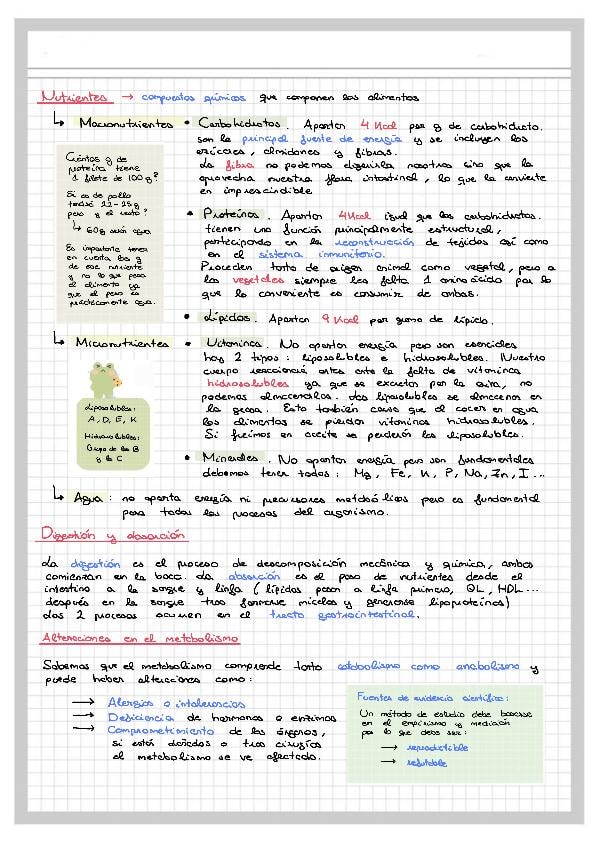 Nutrientes → compuestos químicos que componen los alimentos
↳ Macronutrientes • Carbohidratos. Aportan 4 Kcal por g de carbohidrato.
son la principal fuente de energía y se incluyen los
azúcares, almidones y fibras.
La fibra no podemos digerirla nosotros sino que la
aprovecha nuestra flora intestinal, lo que la convierte
en imprescindible
Cuántos g de
proteína tiene
1 filete de 100g?
Si es de pollo
tendrá 22-25g
pero y el resto?
↳ 60g serán agua
Es importante tener
en cuenta los g
de ese nutriente
y no lo que pesa
el alimento ya
que el peso es
prácticamente agua.
• Proteínas. Aportan 4Kcal igual que los carbohidratos.
tienen una función principalmente estructural,
participando en la reconstrucción de tejidos así como
en el sistema inmunitario.
Proceden tanto de origen animal como vegetal, pero a
los vegetales siempre les falta 1 aminoácido por lo
que lo conveniente es consumir de ambas.
• Lípidos. Aportan 9 Kcal por gramo de lípido.
↳ Micronutrientes • Vitaminas. No aportan energía pero son esenciales
hay 2 tipos: liposolubles e hidrosolubles. Nuestro
cuerpo reaccionará antes ante la falta de vitaminas
hidrosolubles ya que se excretan por la orina, no
podemos almacenarlas. Las liposolubles se almacenan en
la grasa. Esto también causa que al cocer en agua
los alimentos se pierdan vitaminas hidrosolubles.
Si freímos en aceite se perderán las liposolubles.
Liposolubles:
A, D, E, K
Hidrosolubles:
Grupo de las B
y la C
• Minerales. No aportan energía pero son fundamentales
debemos tener todos: Mg, Fe, K, P, Na, Zn, I...
↳ Agua: no aporta energía ni precursores metabólicos pero es fundamental
para todos los procesos del organismo.
Digestión y absorción
La digestión es el proceso de descomposición mecánica y química, ambos
comienzan en la boca. La absorción es el paso de nutrientes desde el
intestino a la sangre y linfa (lípidos pasan a linfa primero, QL, HDL...
después en la sangre tras formarse micelas y generarse lipoproteínas)
Los 2 procesos ocurren en el tracto gastrointestinal.
Alteraciones en el metabolismo
Sabemos que el metabolismo comprende tanto catabolismo como anabolismo y
puede haber alteraciones como:
→ Alergias o intolerancias
→ Deficiencia de hormonas o enzimas
→ Comprometimiento de los órganos,
si están dañados o tras cirugías
el metabolismo se ve afectado.
Fuentes de evidencia científica:
Un método de estudio debe basarse
en el empirismo y medición
por lo que debe ser:
→ reproductible
→ refutable